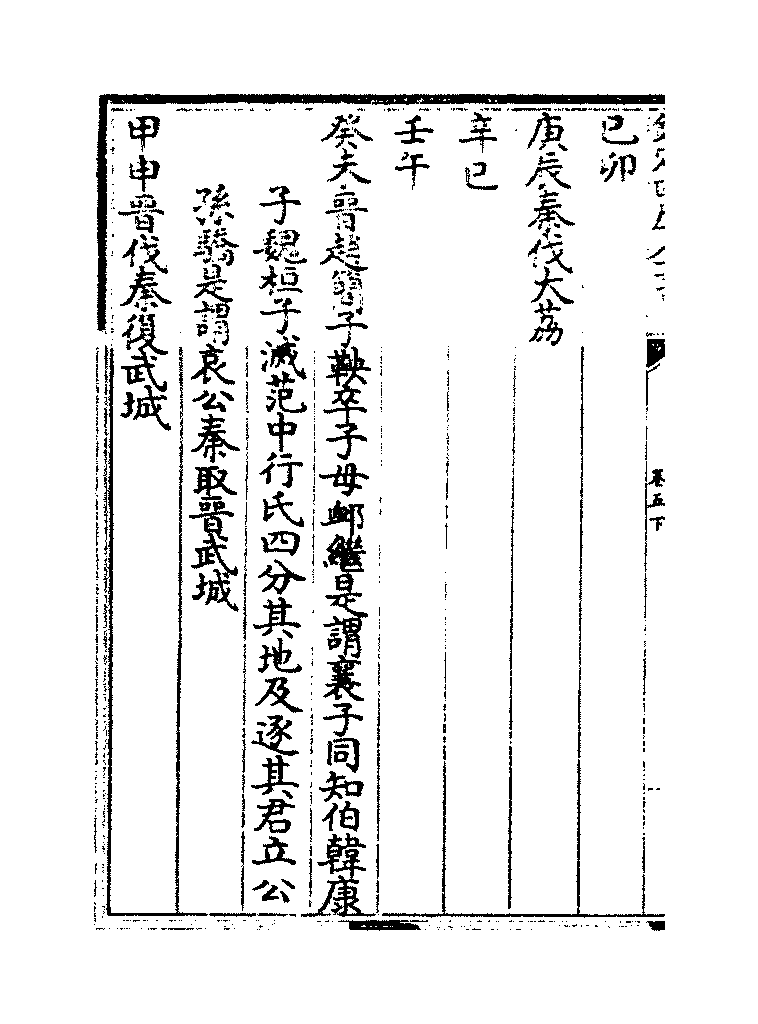 己卯
庚辰秦伐大荔
辛巳
壬午
癸未晉趙簡子鞅卒子毋卹繼是謂襄子同知伯韓康
子魏桓子滅范中行氏四分其地及逐其君立公
孫驕是謂哀公秦取晉武城
甲申晉伐秦復武城
卷五下